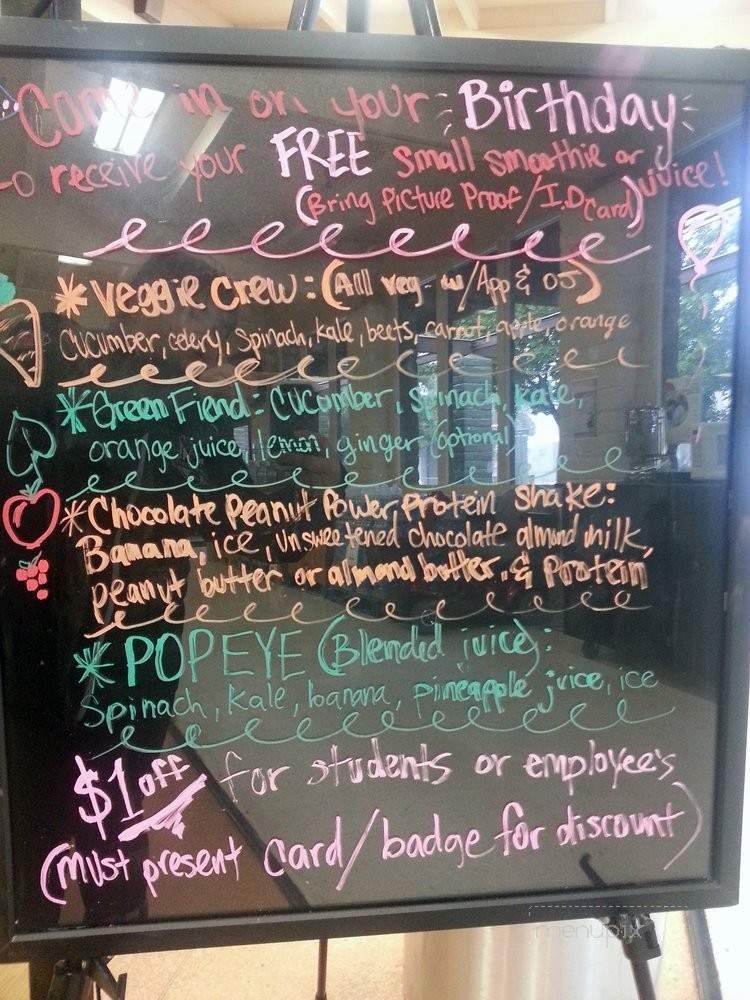 Come in on your Birthday
to receive your FREE small smoothie or juice!
(Bring Picture Proof/I.D Card)
*Veggie Crew: (All veg w/App & OJ)
cucumber, celery, spinach, kale, beets, carrot, apple, orange
*Green Fiend: cucumber, spinach, kale,
orange juice, lemon, ginger (optional)
*Chocolate Peanut Power Protein shake:
Banana, ice, unsweetened chocolate almond milk,
peanut butter or almond butter. & Protein
*POPEYE (Blended juice):
Spinach, kale, banana, pineapple juice, ice
$1 off for students or employee's
(must present card/badge for discount)
menupix